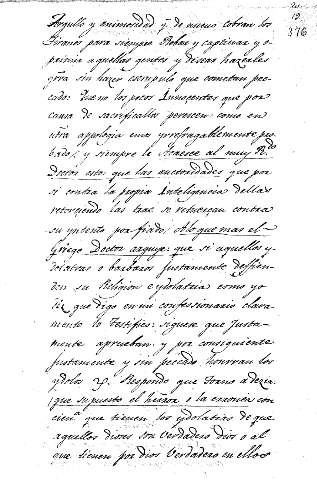 19
376
Orgullo y animosidad q. de nuevo cobran los
tiranos para siempre Robar y captivar y o-
primir aquellas gentes y desean hazerles
gta sin hazer escrupulo que cometan pe-
cado: Que no los pocos Innocentes que por
causa de sacrificallos perecen como en
ntra appologia emos yrrefragablemente pro-
bado; y siempre le acaesce al muy Rdo
Doctor esto: que las auctoridades que por
si contra la propia Inteligencia dellas
retorciendo las trae se retuerzan contra
su yntento porfiado; A lo que mas el
Griego Doctor arguye: que si aquellos y-
dolatras o barbaros Justamente defien-
den su Religion e ydolatria como yo
dize que digo en mi confessionario clara-
mente lo testifico: siguese que Justa-
mente aprueban y por consiguiente
Justamente y sin peccado honrran los
ydolos &. Respondo que torno a dezir,
que supuesto el herror o la erronea con-
ciena que tienen los ydolatras de que
aquellos dioses son verdadero dios o al
que tienen por dios verdadero en ellos